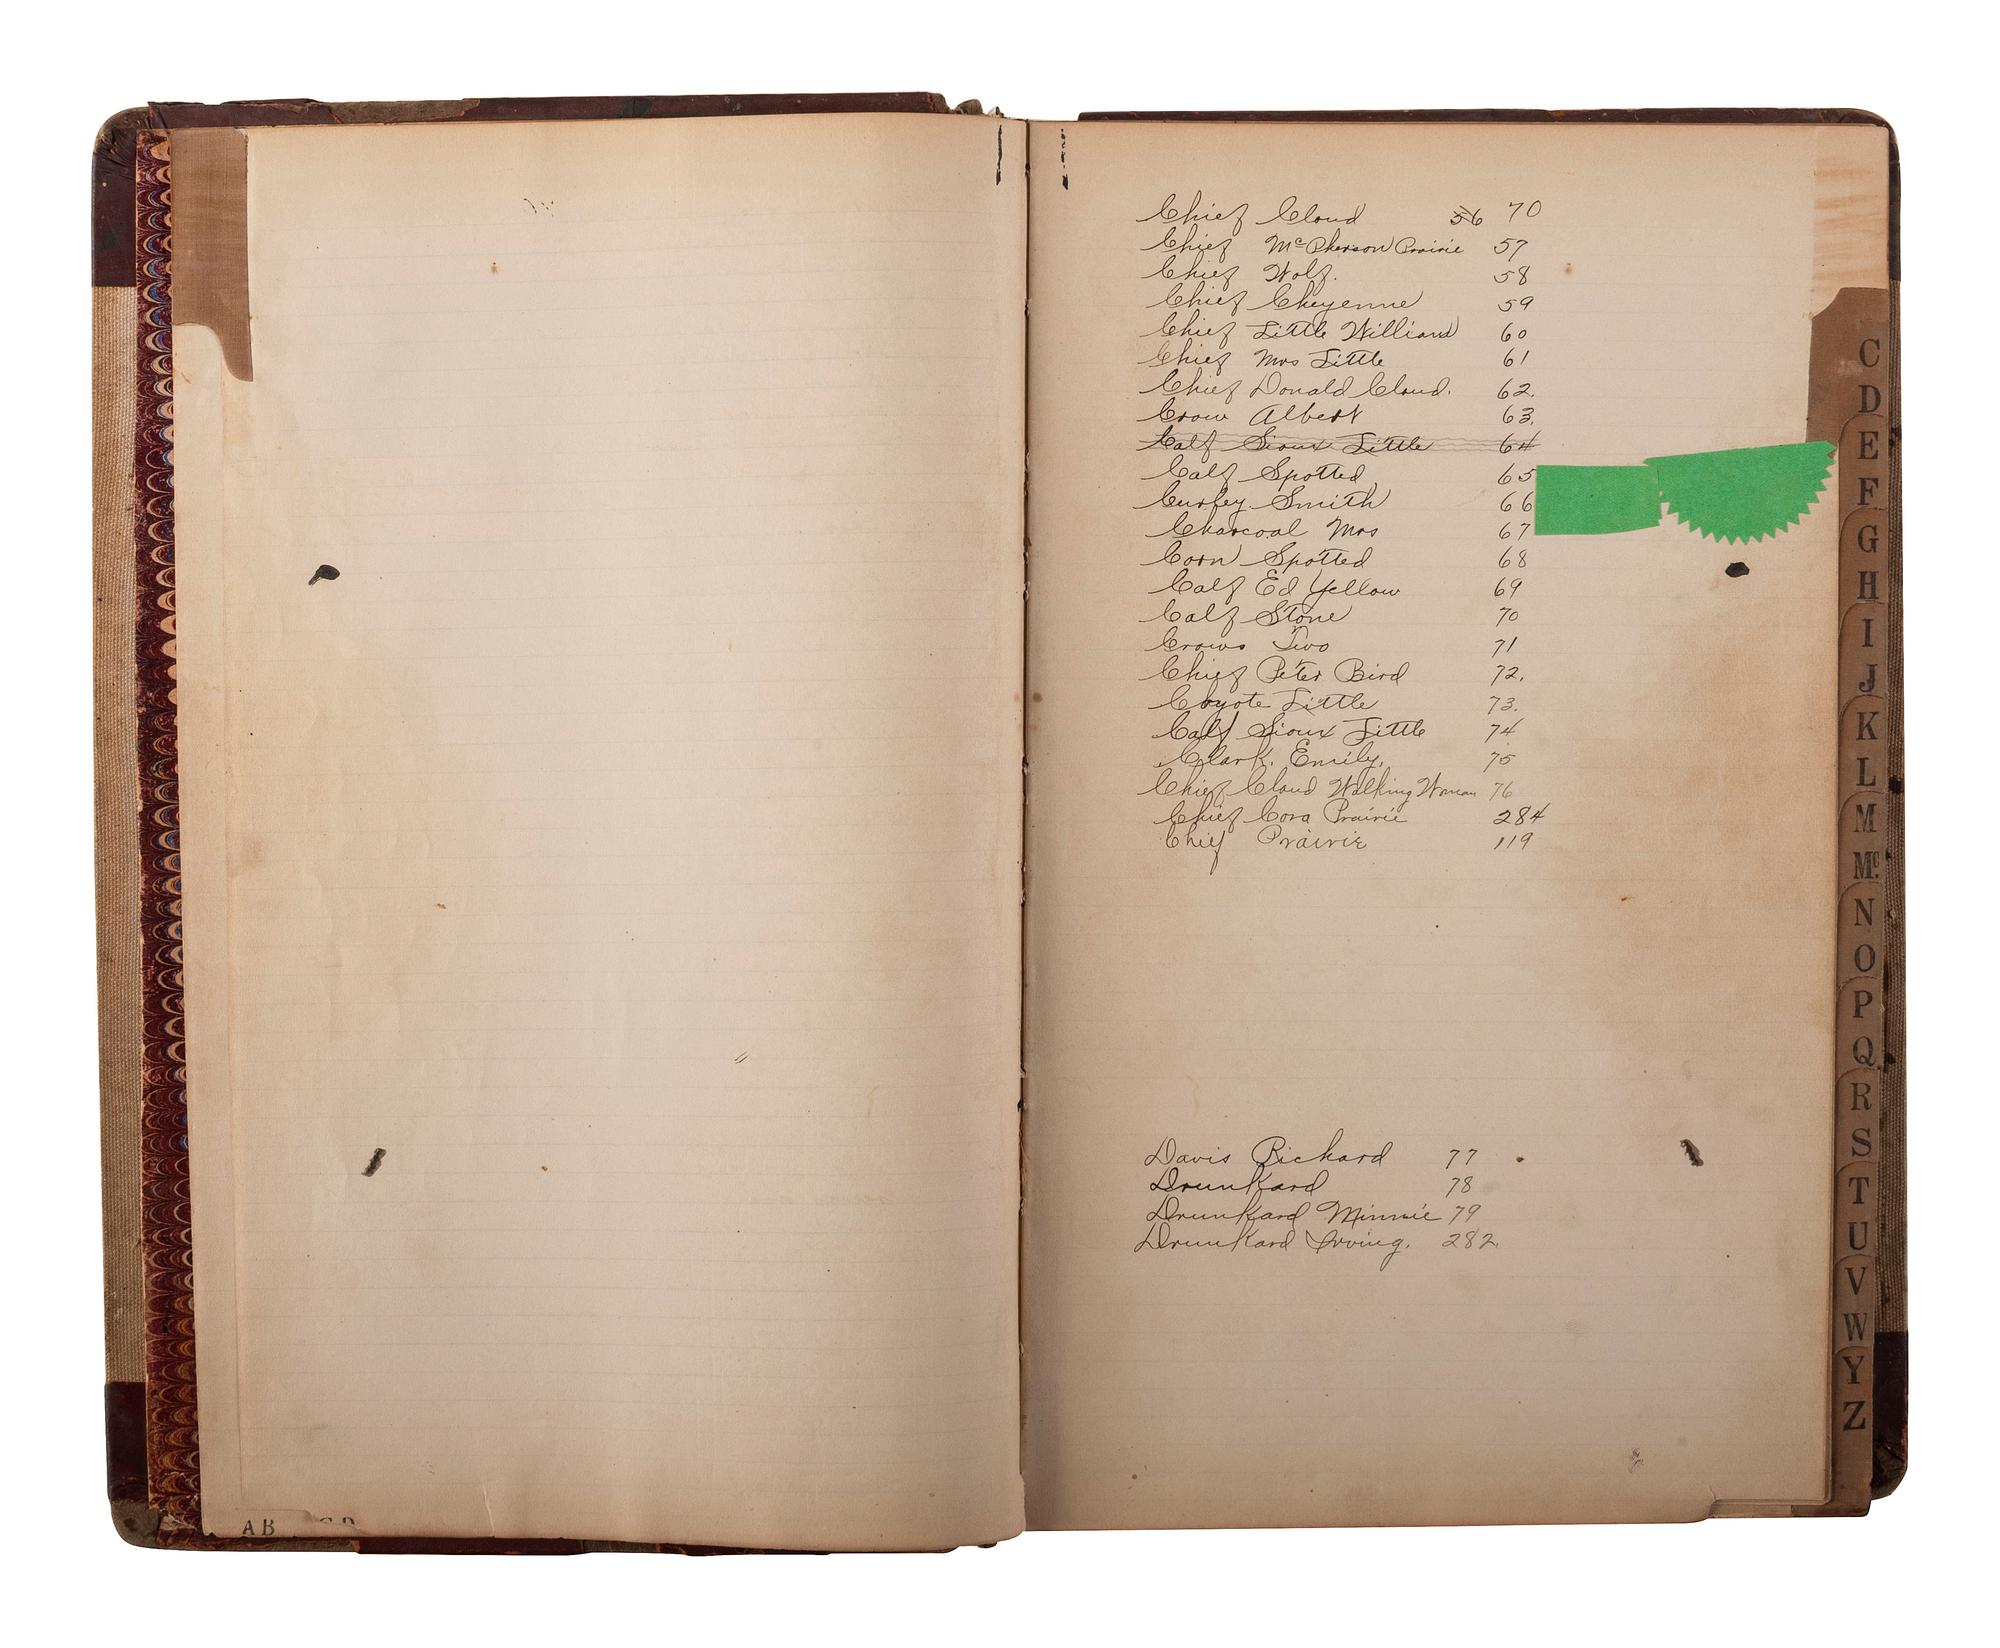 Chief Cloud 56 70
Chief McPherson Prairie 57
Chief Wolf. 58
Chief Cheyenne 59
Chief Little William 60
Chief Mrs Little 61
Chief Donald Cloud. 62.
Crow Albert 63.
Calf Sioux Little 64
Calf Spotted 65
Curley Smith 66
Charcoal Mrs 67
Corn Spotted 68
Calf Ed Yellow 69
Calf Stone 70
Crows Two 71
Chief Peter Bird 72.
Coyote Little 73.
Calf Sioux Little 74
Clark. Emily. 75
Chief Cloud Walking Woman 76
Chief Cora Prairie 284
Chief Prairie 119
Davis Richard 77
Drunkard 78
Drunkard Minnie 79
Drunkard Irving. 282.
C
D
E
F
G
H
I
J
K
L
M
Mc.
N
O
P
Q
R
S
T
U
V
W
Y
Z
A B